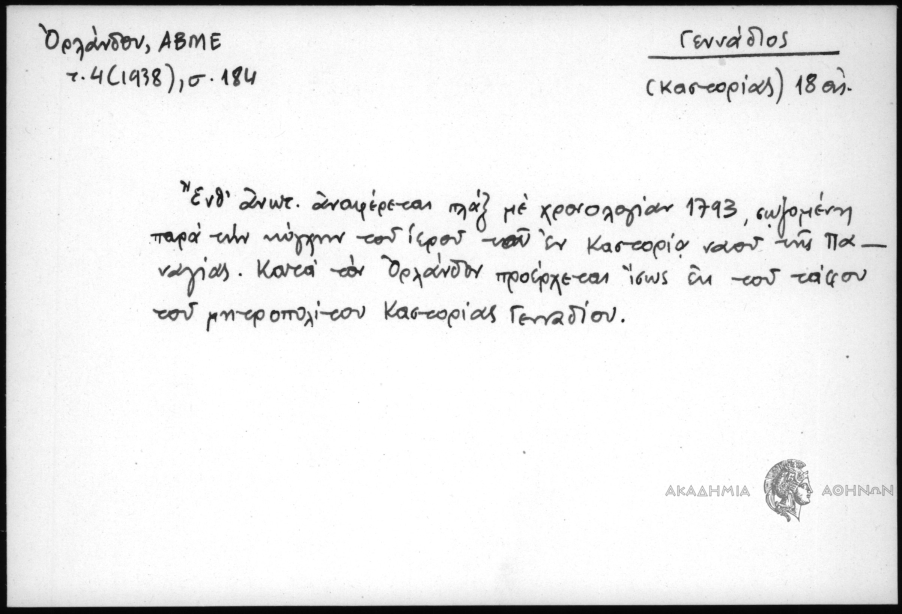 Ὀρλάνδου, ΑΒΜΕ
τ. 4 (1938), σ. 184
Γεννάδιος
(Καστορίας) 18 αἰ.
Ἔνθ' ἀνωτ. ἀναφέρεται πλάξ μέ χρονολογίαν 1793, σῳζομένη
παρά τήν κόγχην τοῦ ἱεροῦ τοῦ ἐν Καστορίᾳ ναοῦ τῆς Πα-
ναγίας. Κατά τόν Ὀρλάνδον προέρχεται ἴσως ἐκ τοῦ τάφου
τοῦ μητροπολίτου Καστορίας Γενναδίου.
ΑΚΑΔΗΜΙΑ ΑΘΗΝΩΝ